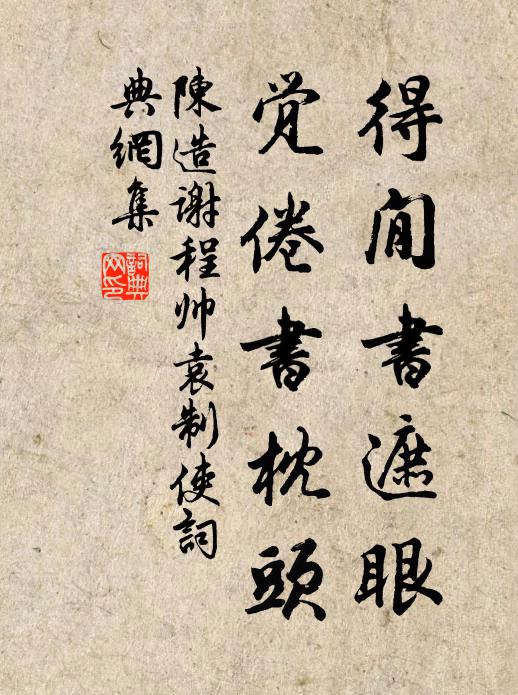 得閒書遮眼
覚倦書枕頭
陳造謝程帅袁制使詞
典網集
詞典
网印